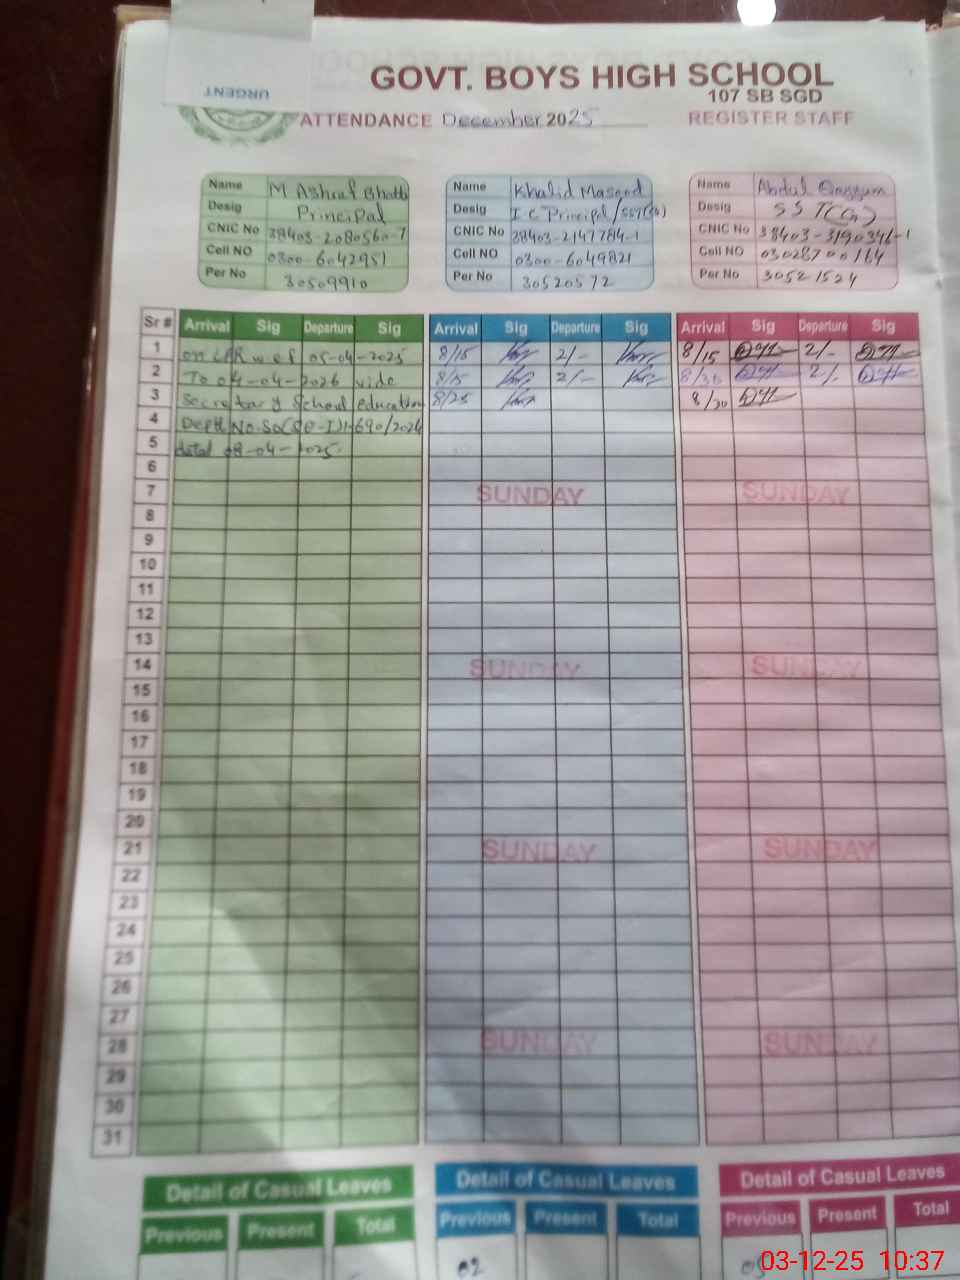 URGENT
GOVT. BOYS HIGH SCHOOL
107 SB SGD
ATTENDANCE December 2025 REGISTER STAFF
Name M Ashraf Bhatti
Desig Principal
CNIC No 38403-2080560-7
Cell NO 0300-6042951
Per No 30509910
Name Khalid Masood
Desig I-C Principal/SST(
CNIC No 38403-2147784-1
Cell NO 0300-6049821
Per No 30520572
Name Abdul Qayyum
Desig SST(
CNIC No 38403-3190346-1
Cell NO 03028700164
Per No 30521524
Sr # Arrival Sig Departure Sig Arrival Sig Departure Sig Arrival Sig Departure Sig
1 on LPR w e f 05-04-2025 8/15 2/- 8/15 2/-
2 To 04-04-2026 vide 8/15 2/- 8/30 2/-
3 Secretary School education 8/25 8/20
4 Deptt No. SO(SE-I)1-690/2024
5 dated 08-04-2025
6
7 SUNDAY SUNDAY
8
9
10
11
12
13
14 SUNDAY SUNDAY
15
16
17
18
19
20
21 SUNDAY SUNDAY
22
23
24
25
26
27
28 SUNDAY SUNDAY
29
30
31
Detail of Casual Leaves Detail of Casual Leaves Detail of Casual Leaves
Previous Present Total Previous Present Total Previous Present Total
02
03-12-25 10:37